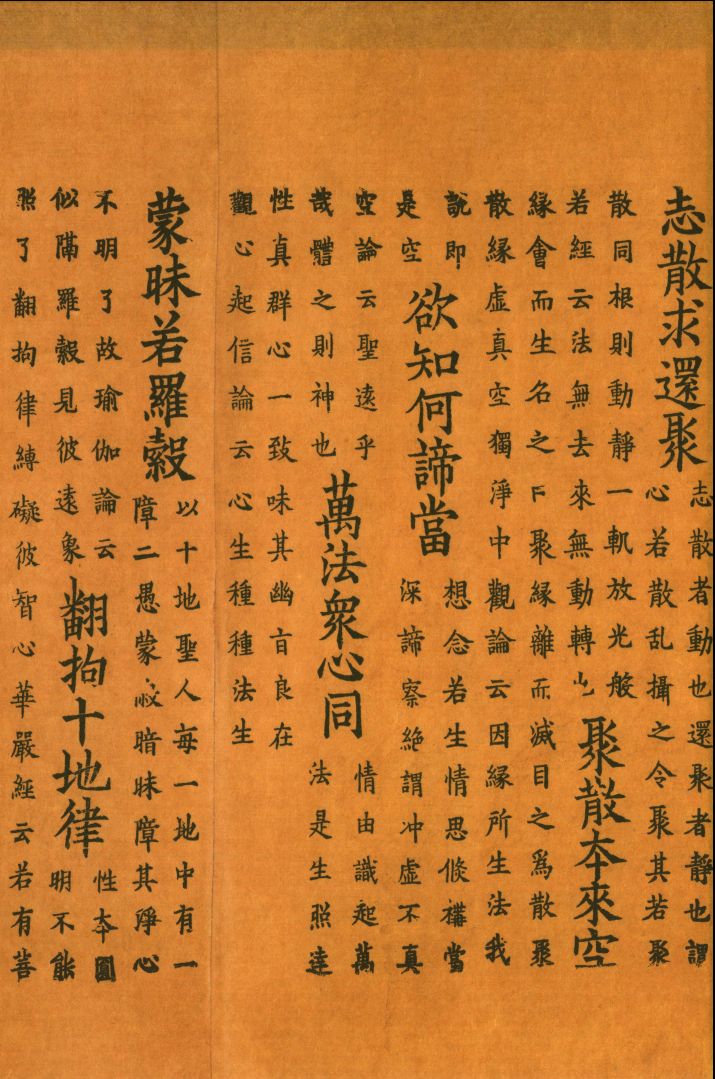 志散求還聚
志散者動也還聚者靜也謂
心若散乱攝之令聚其若聚
散同根則動靜一軌放光般
若經云法無去來無動轉
聚散本來空
緣會而生名之聚緣離而滅目之爲散聚
散緣虛真空獨淨中觀論云因緣所生法我
說即
是空
欲知何諦當
想念若生情思倏當
深諦察絶謂冲虛不真
空論云聖遠乎
哉體之則神也
萬法衆心同
情由識起萬
法是生照達
性真群心一致味其幽旨良在
觀心起信論云心生種種法生
蒙昧若羅縠
以十地聖人每一地中有一
障二愚蒙暗昧障其淨心
不明了故瑜伽論云
似隔羅縠見彼遠象
翻拘十地律
性本圓
明不能
照了翻拘律縛礙彼智心華嚴經云若有菩